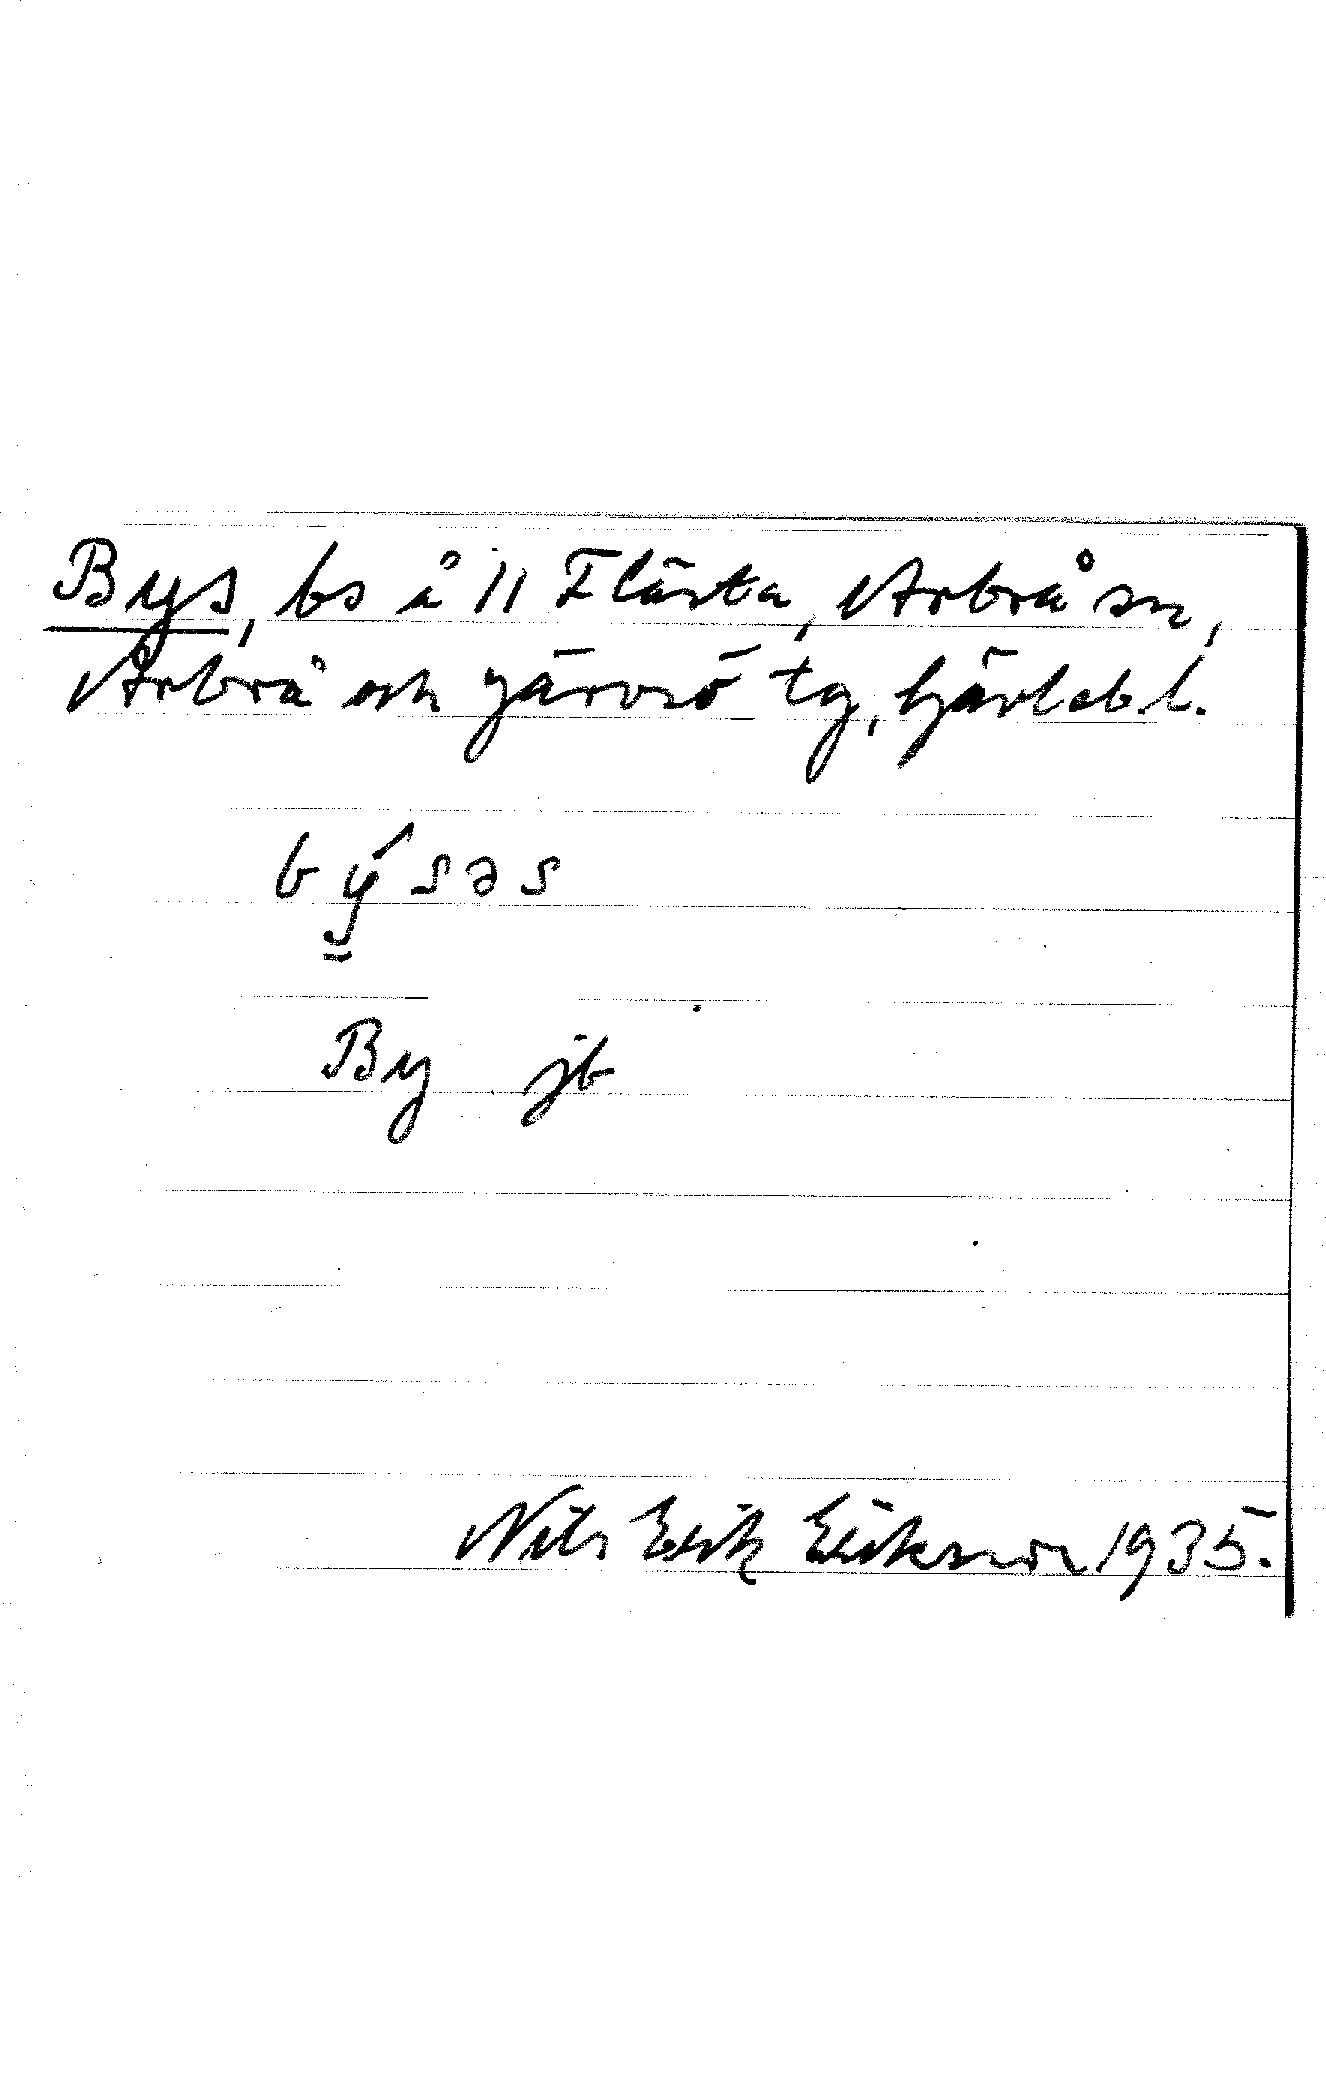 Bys, bs å 11 Flästa, Arbrå sn,
Arbrå och Järvsö tg, Gävleb. l.
býsəs
By jb
Nils Erik Erikson 1935.